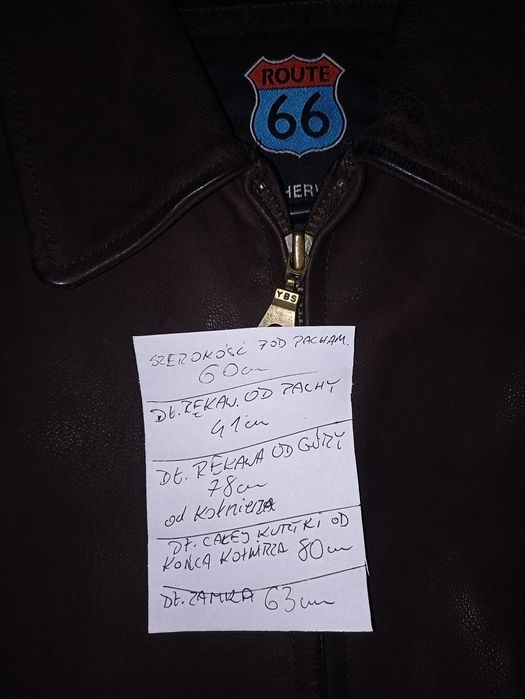 ROUTE
66
HERV
YBS
SZEROKOŚĆ POD PACHAM.
60cm
DŁ. RĘKAW. OD PACHY
41cm
DŁ. RĘKAWA OD GÓRY
78cm
od KOŁNIERZA
DŁ. CAŁEJ KURTKI OD
KOŃCA KOŁNIRZA 80cm
DŁ. ZAMKA 63cm